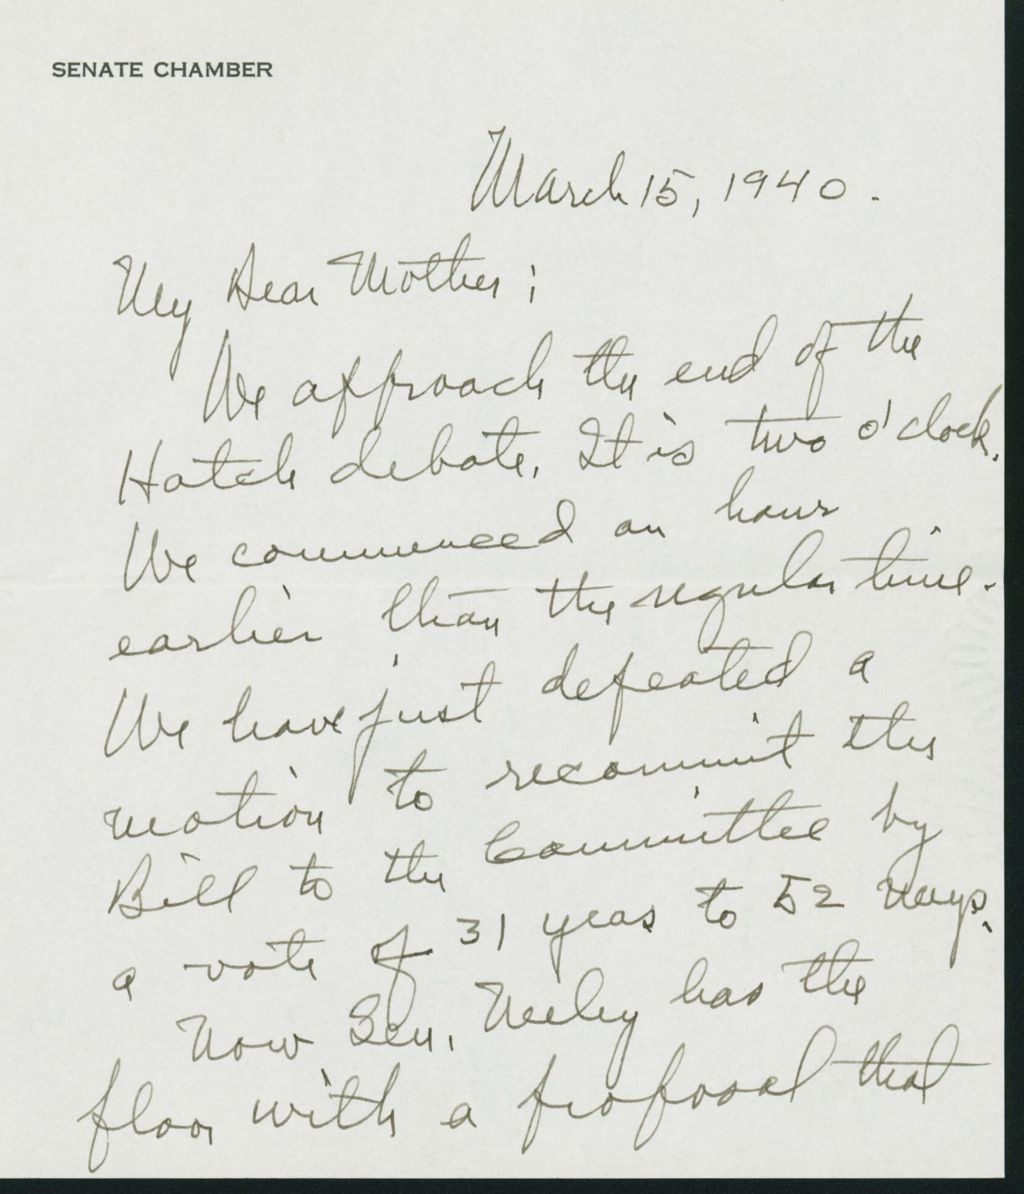 SENATE CHAMBER
March 15, 1940.
My Dear Mother;
We approach the end of the
Hatch debate. It is two o'clock.
We commenced an hour
earlier than the regular time.
We have just defeated a
motion to recommit this
Bill to the Committee by
a vote of 31 yeas to 52 nays.
Now Sen. Neely has the
floor with a proposal that